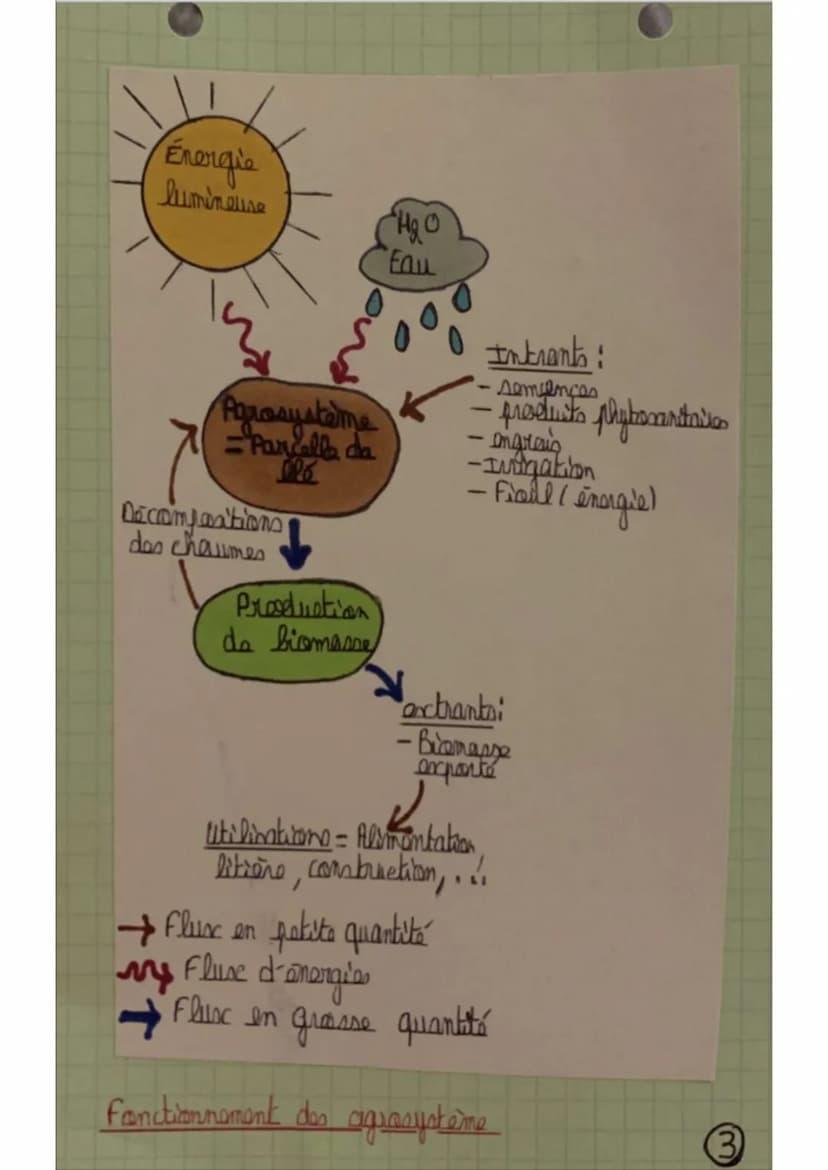 Énergie
lumineuse
H2O
Eau
Intrants :
- semences
- produits phytosanitaires
- engrais
- Irrigation
- Fioul (énergie)
Agrosystème
= Parcelle de
blé
Décompositions
des chaumes
Production
de biomasse
extrants :
- Biomasse
exporté
Utilisations = Alimentation,
litière, construction, ...
→ Flux en petite quantité
Flux d'énergies
→ Flux en grosse quantité
Fonctionnement des agrosystème
3